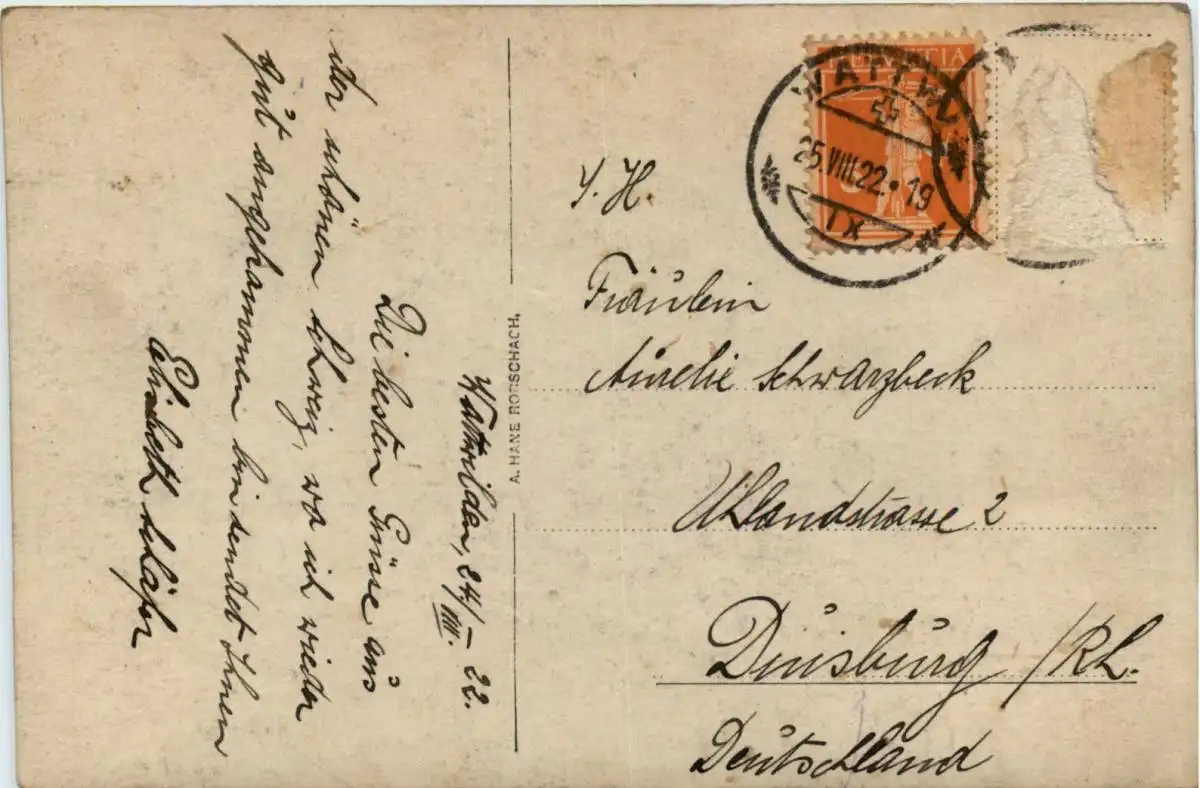 Wattwil den, 24/VIII. – 22.
Die besten Grüsse aus
der schönen Schweiz, wo ich wieder
gut angekommen bin sendet Ihnen
Elisabeth
A. HANE RORSCHACH.
HELVETIA
WATTWIL
25.VIII.22. 19
IX
Fräulein
Aurelie Schwarzbeck
Uhlandstrasse 2
Duisburg /Rh.
Deutschland